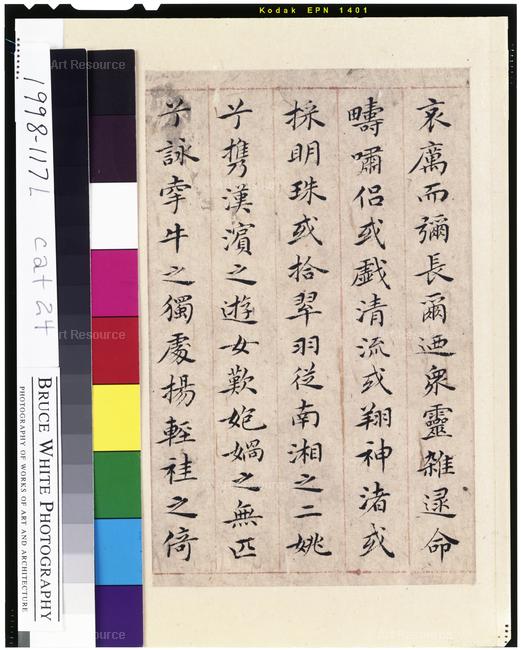 Kodak EPN 1401
1998-117L cat 24
BRUCE WHITE PHOTOGRAPHY
PHOTOGRAPHY OF WORKS OF ART AND ARCHITECTURE
哀厲而彌長爾迺衆靈雜逯命
疇嘯侣或戯清流或翔神渚或
採明珠或拾翠羽從南湘之二姚
兮携漢濱之遊女歎㚿媧之無匹
兮詠牽牛之獨處揚輕袿之倚
Art Resource
Art Resource
Art Resource
Art Resource